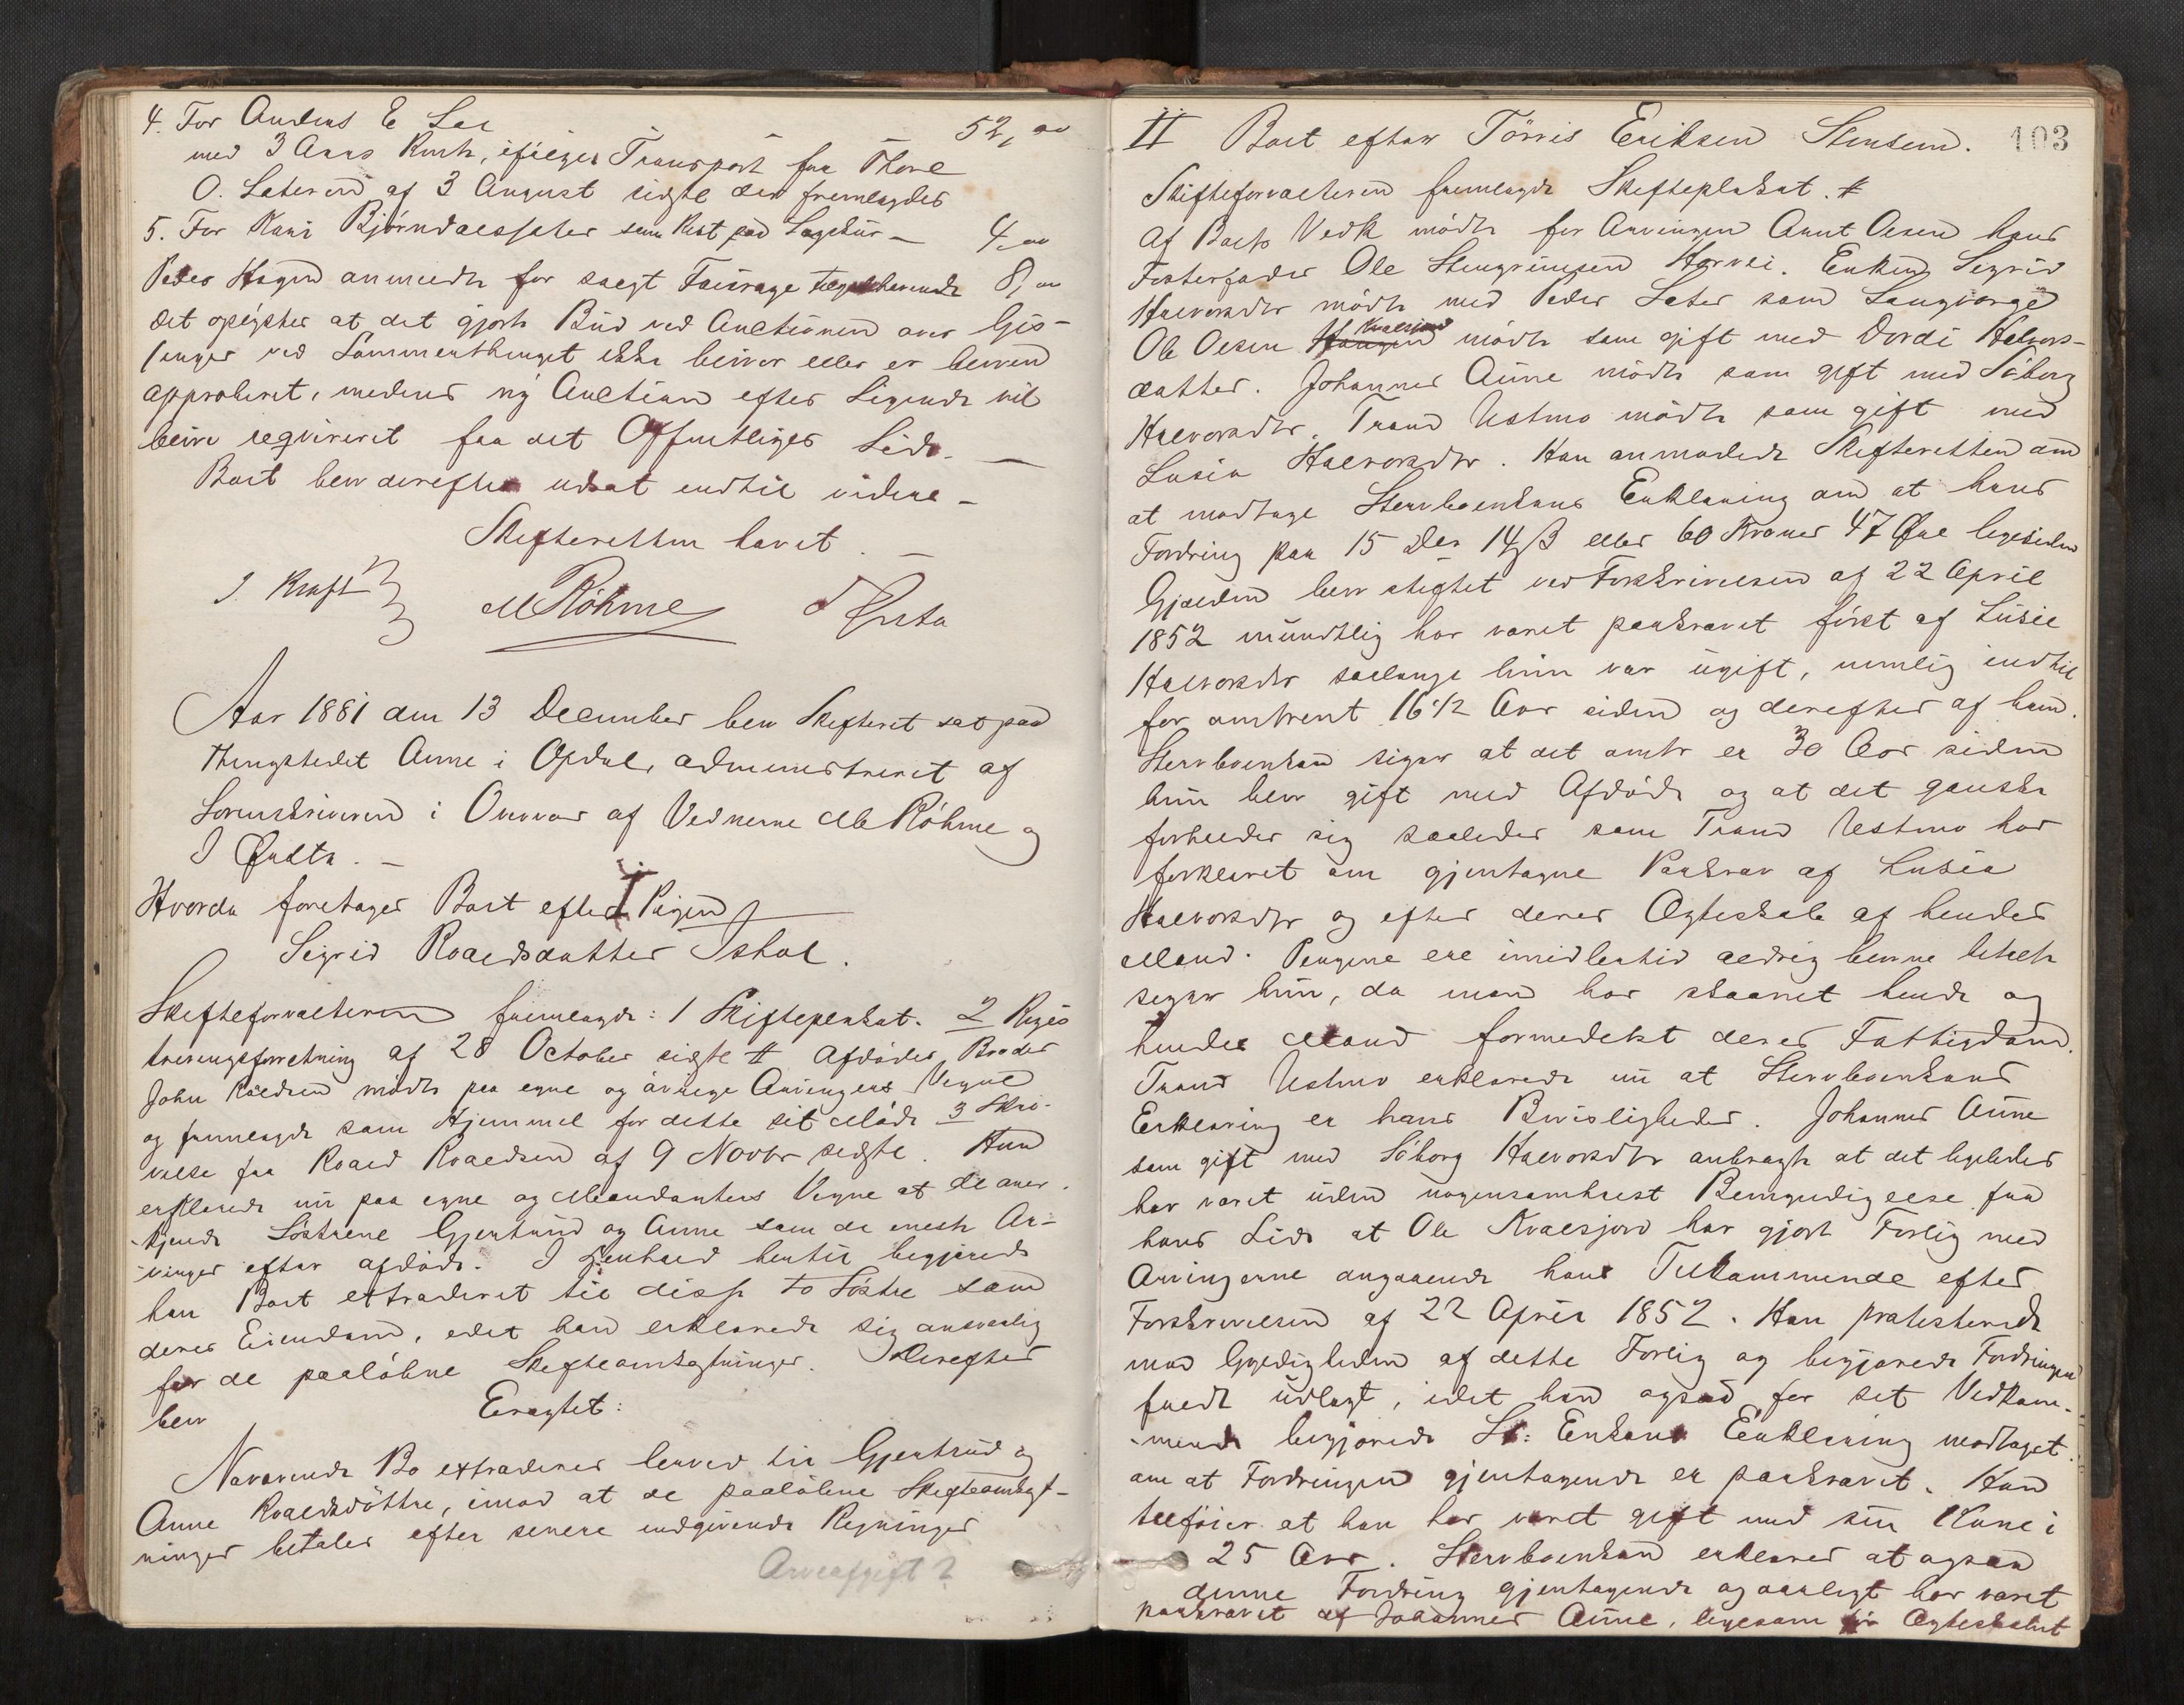 4. For Anders E Ler 52,00
med 3 Aars Rente, ifølge Transport fra Thore
O. Sateren af 3 August sidste der fremlagdes
5. For Kari Bjørndalsseter som Rest paa Legekur — 4,00
Peder Hagen anmeldte for solgt Tilgodehavende 8,00
Det oplystes at det gjorte Bud ved Auctionen over Gjs-
ninger ved Sammenthinget ikke bliver eller er bleven
approberet, medens ny Auction efter Sigende vil
blive reqvireret fra det Offentliges Side. —
Boet blev derefter udsat indtil videre —
Skifteretten hævet. —
J. Kraft M Röhme J Ørsta
Aar 1881 den 13 December blev Skifteret sat paa
Thingstedet Aune i Opdal, administreret af
Sorenskriveren i Overvær af Vidnerne M Röhme og
J Ørsta. —
Hvorda foretages Boet efter I Pigen
Sigrid Roaldsdatter Ishol.
Skifteforvalteren fremlagde: 1 Skifteplakat. 2 Regis
treringsforretning af 28 October sidste # Afdødes Broder
John Roaldsen mødte paa egne og øvrige Arvingers Vegne
og fremlagde som Hjemmel for dette sit Møde 3 Skri-
velse fra Roald Roaldsen af 9 Novbr sidste. Han
erklærede nu paa egne og Mandanters Vegne at de aner-
kjende Søstrene Gjertrud og Anne som de eneste Ar-
vinger efter afdøde. I Henhold hertil begjærede
han Boet extraderet til disse to Søstre som
deres Eiendom, idet han erklærede sig ansvarlig
for de paaløbne Skifteomkostninger. Derefter
blev Eragtet:
Nærværende Bo extraderes herved til Gjertrud og
Anne Roaldsdøttre, imod at de paaløbne Skifteomkost-
ninger betales efter senere indgivende Regninger
Arveafgift?
II Boet efter Tørris Eriksen Stensem. 103
Skifteforvalteren fremlagde Skifteplakat. #
Af Boets Vedk mødte for Arvingen Arnt Olsen hans
Fosterfader Ole Stengrimsen Horvli. Enken Sigrid
Halvorsdtr mødte med Peder Sæter som Laugværge
Ole Olsen Kvalsjord mødte som gift med Dordi Halvors-
datter. Johannes Aune mødte som gift med Søborg
Halvorsdtr. Trond Ustmo mødte som gift med
Lusia Halvorsdtr. Han anmodede Skifteretten om
at modtage Stervboenkens Erklæring om at hans
Fordring paa 15 Dlr 14 ß eller 60 Kroner 47 Øre ligesiden
Gjælden blev stiftet ved Forskrivelsen af 22 April
1852 mundtlig har været paakrævet først af Lusie
Halvorsdtr saalænge hun var ugift, nemlig indtil
for omtrent 16 1/2 Aar siden og derefter af ham.
Stervboenken siger at det omtr er 30 Aar siden
hun blev gift med Afdøde og at det ganske
forholder sig saaledes som Trond Ustmo har
forklaret om gjentagne Paakrav af Lusia
Halvorsdtr og efter deres Ægteskab af hendes
Mand. Pengene ere imidlertid aldrig blevne betalte
siger hun, da man har skaanet hende og
hendes Mand formedelst deres Fattigdom.
Trond Ustmo erklærede nu at Stervboenkens
Erklæring er hans Bevisligheder. Johannes Aune
som gift med Søborg Halvorsdtr anbragte at det ligeledes
har været uden nogensomhelst Bemyndigelse fra
hans Side at Ole Kvalsjord har gjort Forlig med
Arvingerne angaaende hans Tilkommende efter
Forskrivelsen af 22 April 1852. Han protesterede
mod Gyldigheden af dette Forlig og begjærede Fordringen
fuldt udlagt, idet han ogsaa for sit Vedkom-
mende begjærede St: Enkens Erklæring modtaget
om at Fordringen gjentagende er paakrævet. Han
tilføier at han har været gift med sin Kone i
25 Aar. Stervboenken erklærer at ogsaa
denne Fordring gjentagende og aarligt har været
paakrævet af Johannes Aune, ligesom før Ægteskabet